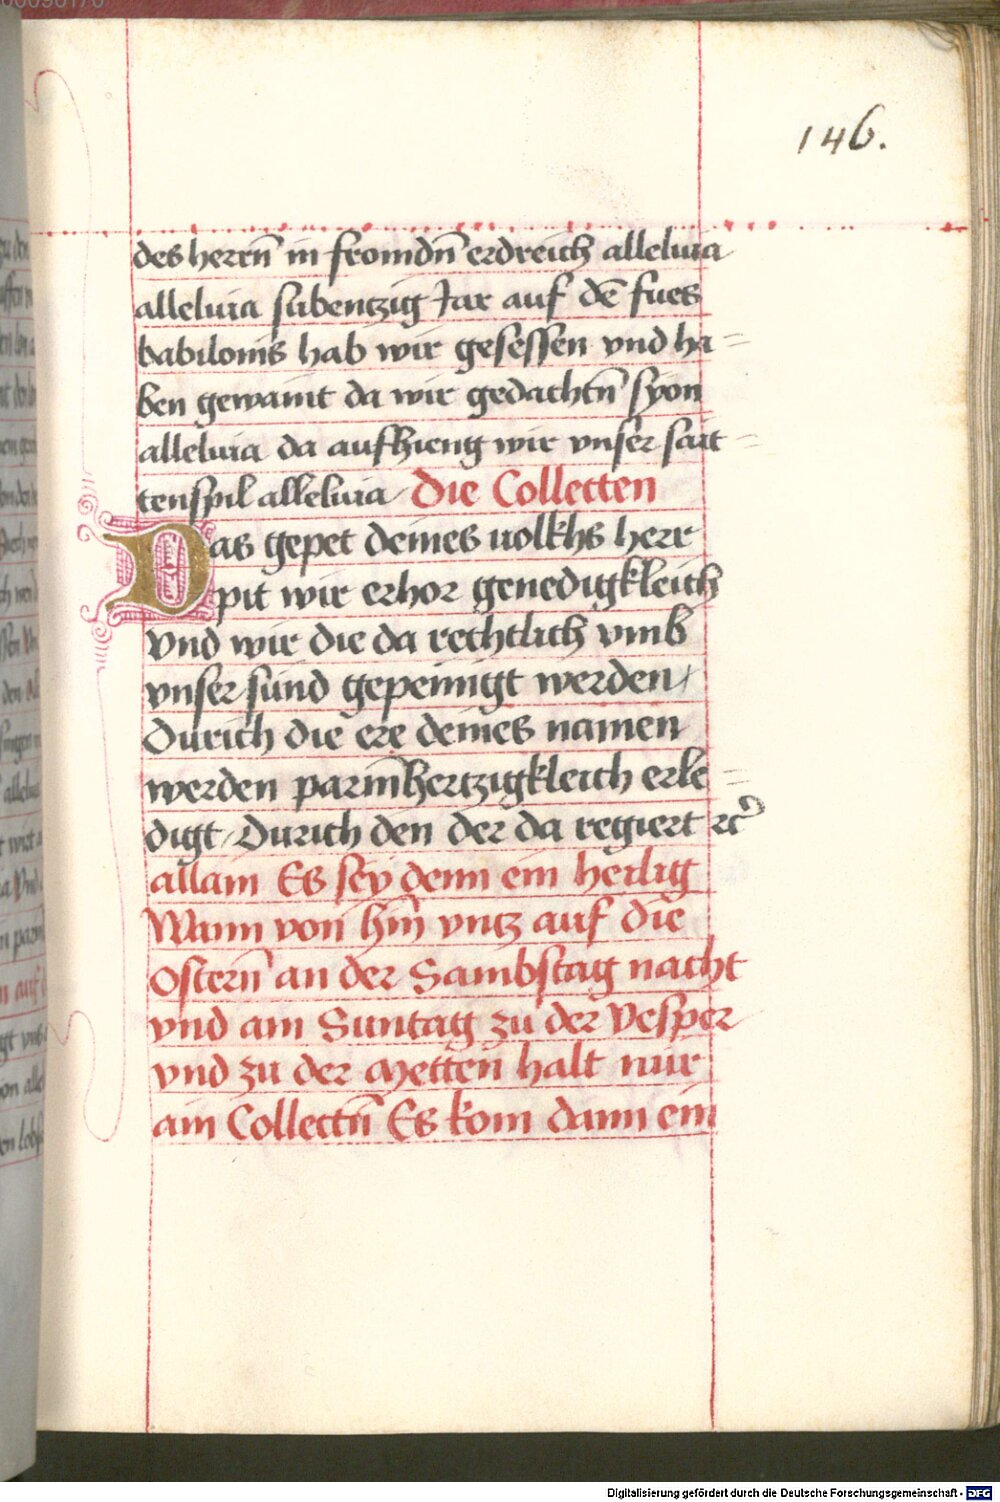 146.
des herrn̄ in fromdn̄ erdreich alleluia
alleluia sübentzig Jar auf dē fues
babilonis hab wir gesessen vnd ha=
ben gewaint da wir gedachtn̄ syon
alleluia da aufhieng wir vnser sait=
tenspil alleluia Die Collecten
Das gepet deines uolkhs herr
pit wir erhor genedigkleich
Vnd wir die da rechtlich vmb
vnser sünd gepeinigt werden/
Durich die ere deines namen
werden parm̄hertzigkleich erle=
digt/ Durich den der da regiert ꝛc̄
allain Es sey denn ein heilig
Wann von hin̄ vntz auf die
Ostern̄ an der Sambstag nacht
vnd am Suntag zu der Vesper
vnd zu der Metten halt nur
ain Collectn̄ Es kom dann ein
Digitalisierung gefördert durch die Deutsche Forschungsgemeinschaft - DFG